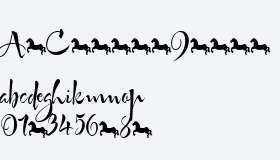 A C I
abcdeghikmnop
01 3456 8